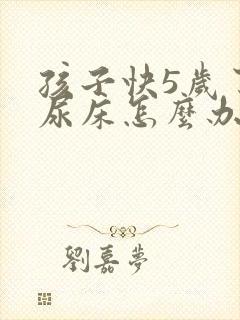 孩子快5歲
尿床怎麼办
劉嘉夢